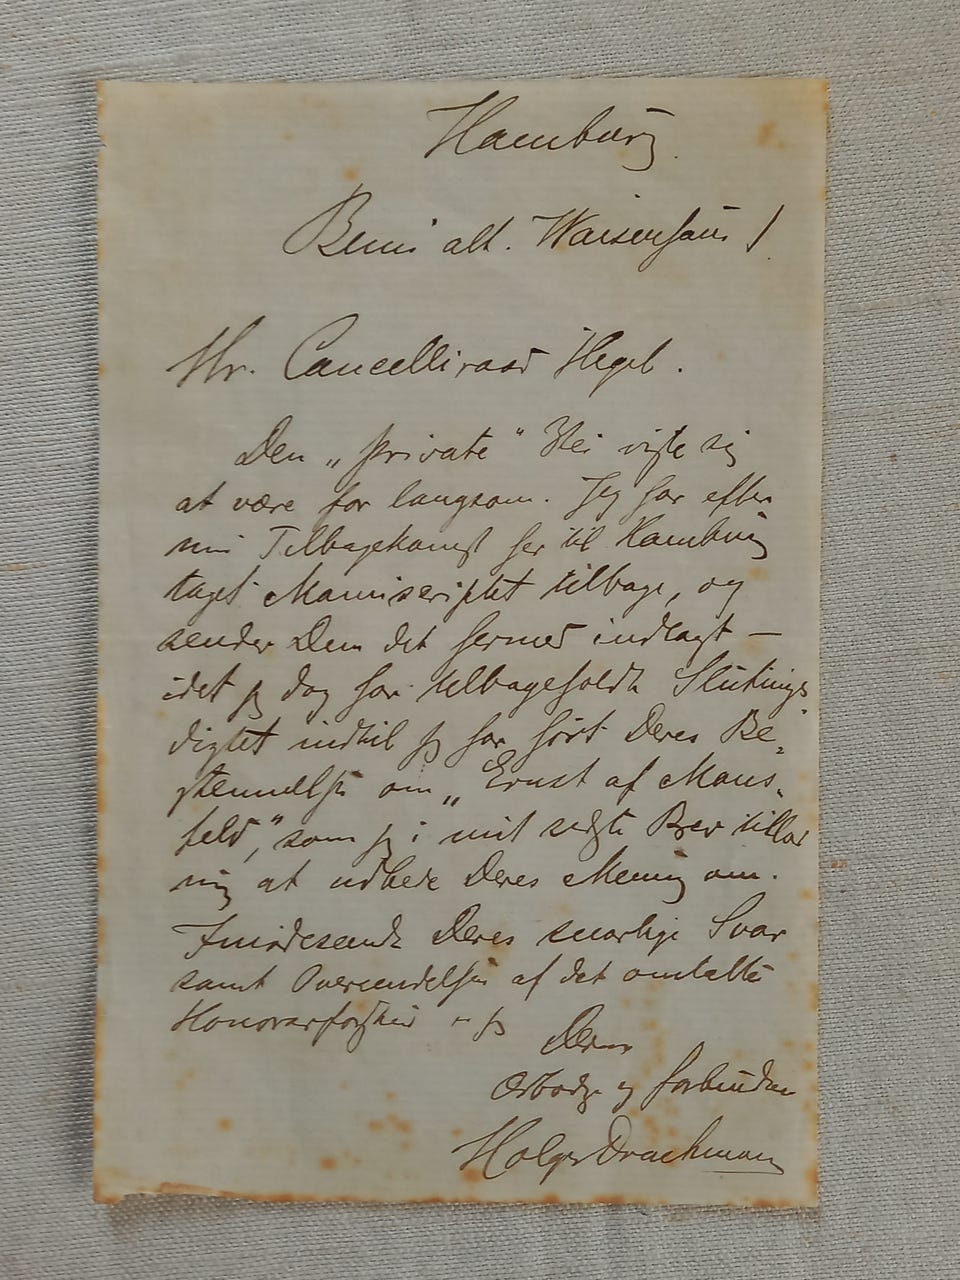 Hamburg.
Beim alt. Waisenhaus 1.
Hr. Cancelliraad Hegel.
Den „private“ Vei viste sig
at være for langsom. Jeg har efter
min Tilbagekomst her til Hamburg
taget Manuscriptet tilbage, og
sender Dem det hermed indlagt —
idet jeg dog har tilbageholdt Slutnings
digtet indtil jeg har hørt Deres Be-
stemmelse om „Ernst af Mans-
feld“, som jeg i mit sidste Brev tillod
mig at udbede Deres Mening om.
Imødeseende Deres snarlige Svar
samt Oversendelsen af det omtalte
Honorarforskud er jeg
Deres
Ærbødige og forbundne
Holger Drachmann